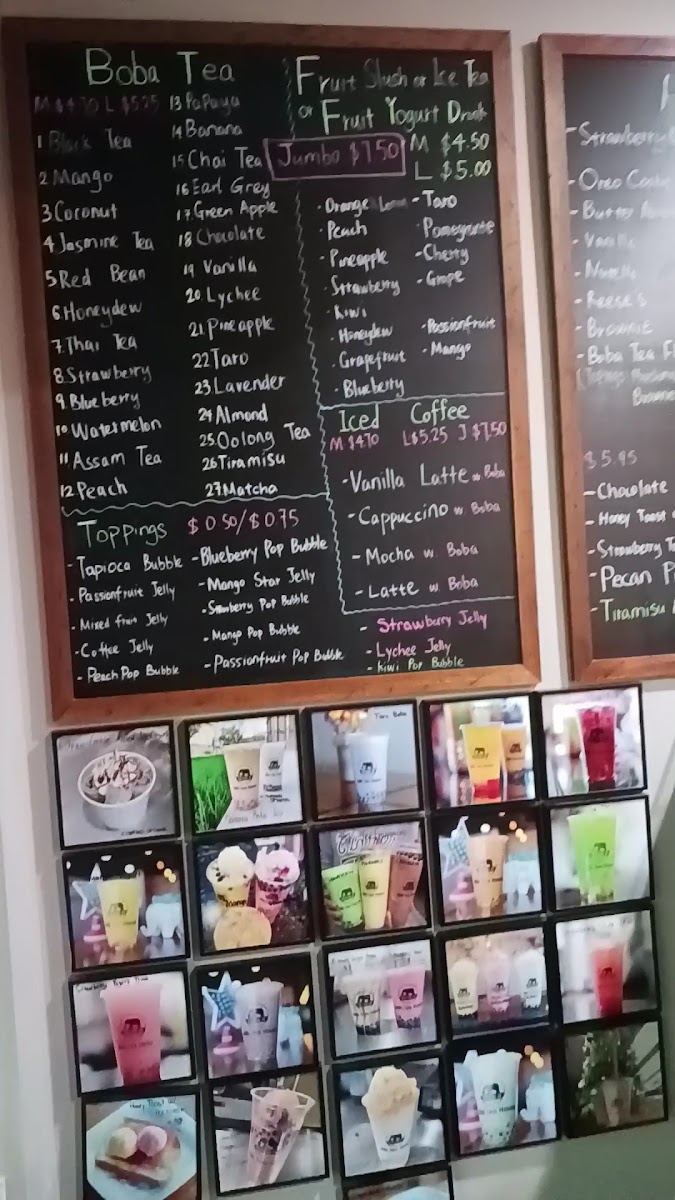 Boba Tea
M $4.70 L $5.25
1 Black Tea
2 Mango
3 Coconut
4 Jasmine Tea
5 Red Bean
6 Honeydew
7. Thai Tea
8. Strawberry
9. Blueberry
10 Watermelon
11 Assam Tea
12 Peach
13 Papaya
14 Banana
15 Chai Tea
16 Earl Grey
17. Green Apple
18 Chocolate
19 Vanilla
20 Lychee
21. Pineapple
22 Taro
23 Lavender
24 Almond
25 Oolong Tea
26 Tiramisu
27. Matcha
Fruit Slush or Ice Tea
or Fruit Yogurt Drink
Jumbo $7.50
M $4.50
L $5.00
- Orange
- Peach
- Pineapple
- Strawberry
- Kiwi
- Honeydew
- Grapefruit
- Blueberry
- Taro
- Cherry
- Grape
- Passionfruit
- Mango
Iced Coffee
M $4.70 L $5.25 J $7.50
- Vanilla Latte w Boba
- Cappuccino w Boba
- Mocha w. Boba
- Latte w Boba
Toppings $0.50/$0.75
- Tapioca Bubble
- Passionfruit Jelly
- Mixed fruit Jelly
- Coffee Jelly
- Peach Pop Bubble
- Blueberry Pop Bubble
- Mango Star Jelly
- Strawberry Pop Bubble
- Mango Pop Bubble
- Passionfruit Pop Bubble
- Strawbury Jelly
- Lychee Jelly
- Kiwi Pop Bubble
- Strawberry
- Oreo
- Butter
- Vanilla
- Nutella
- Reese's
- Brownie
- Boba Tea
$5.95
- Chocolate
- Honey Toast
- Strawberry
- Pecan
- Tiramisu